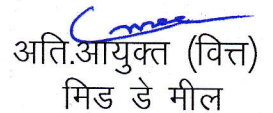 अति.आयुक्त (वित्त)
मिड डे मील